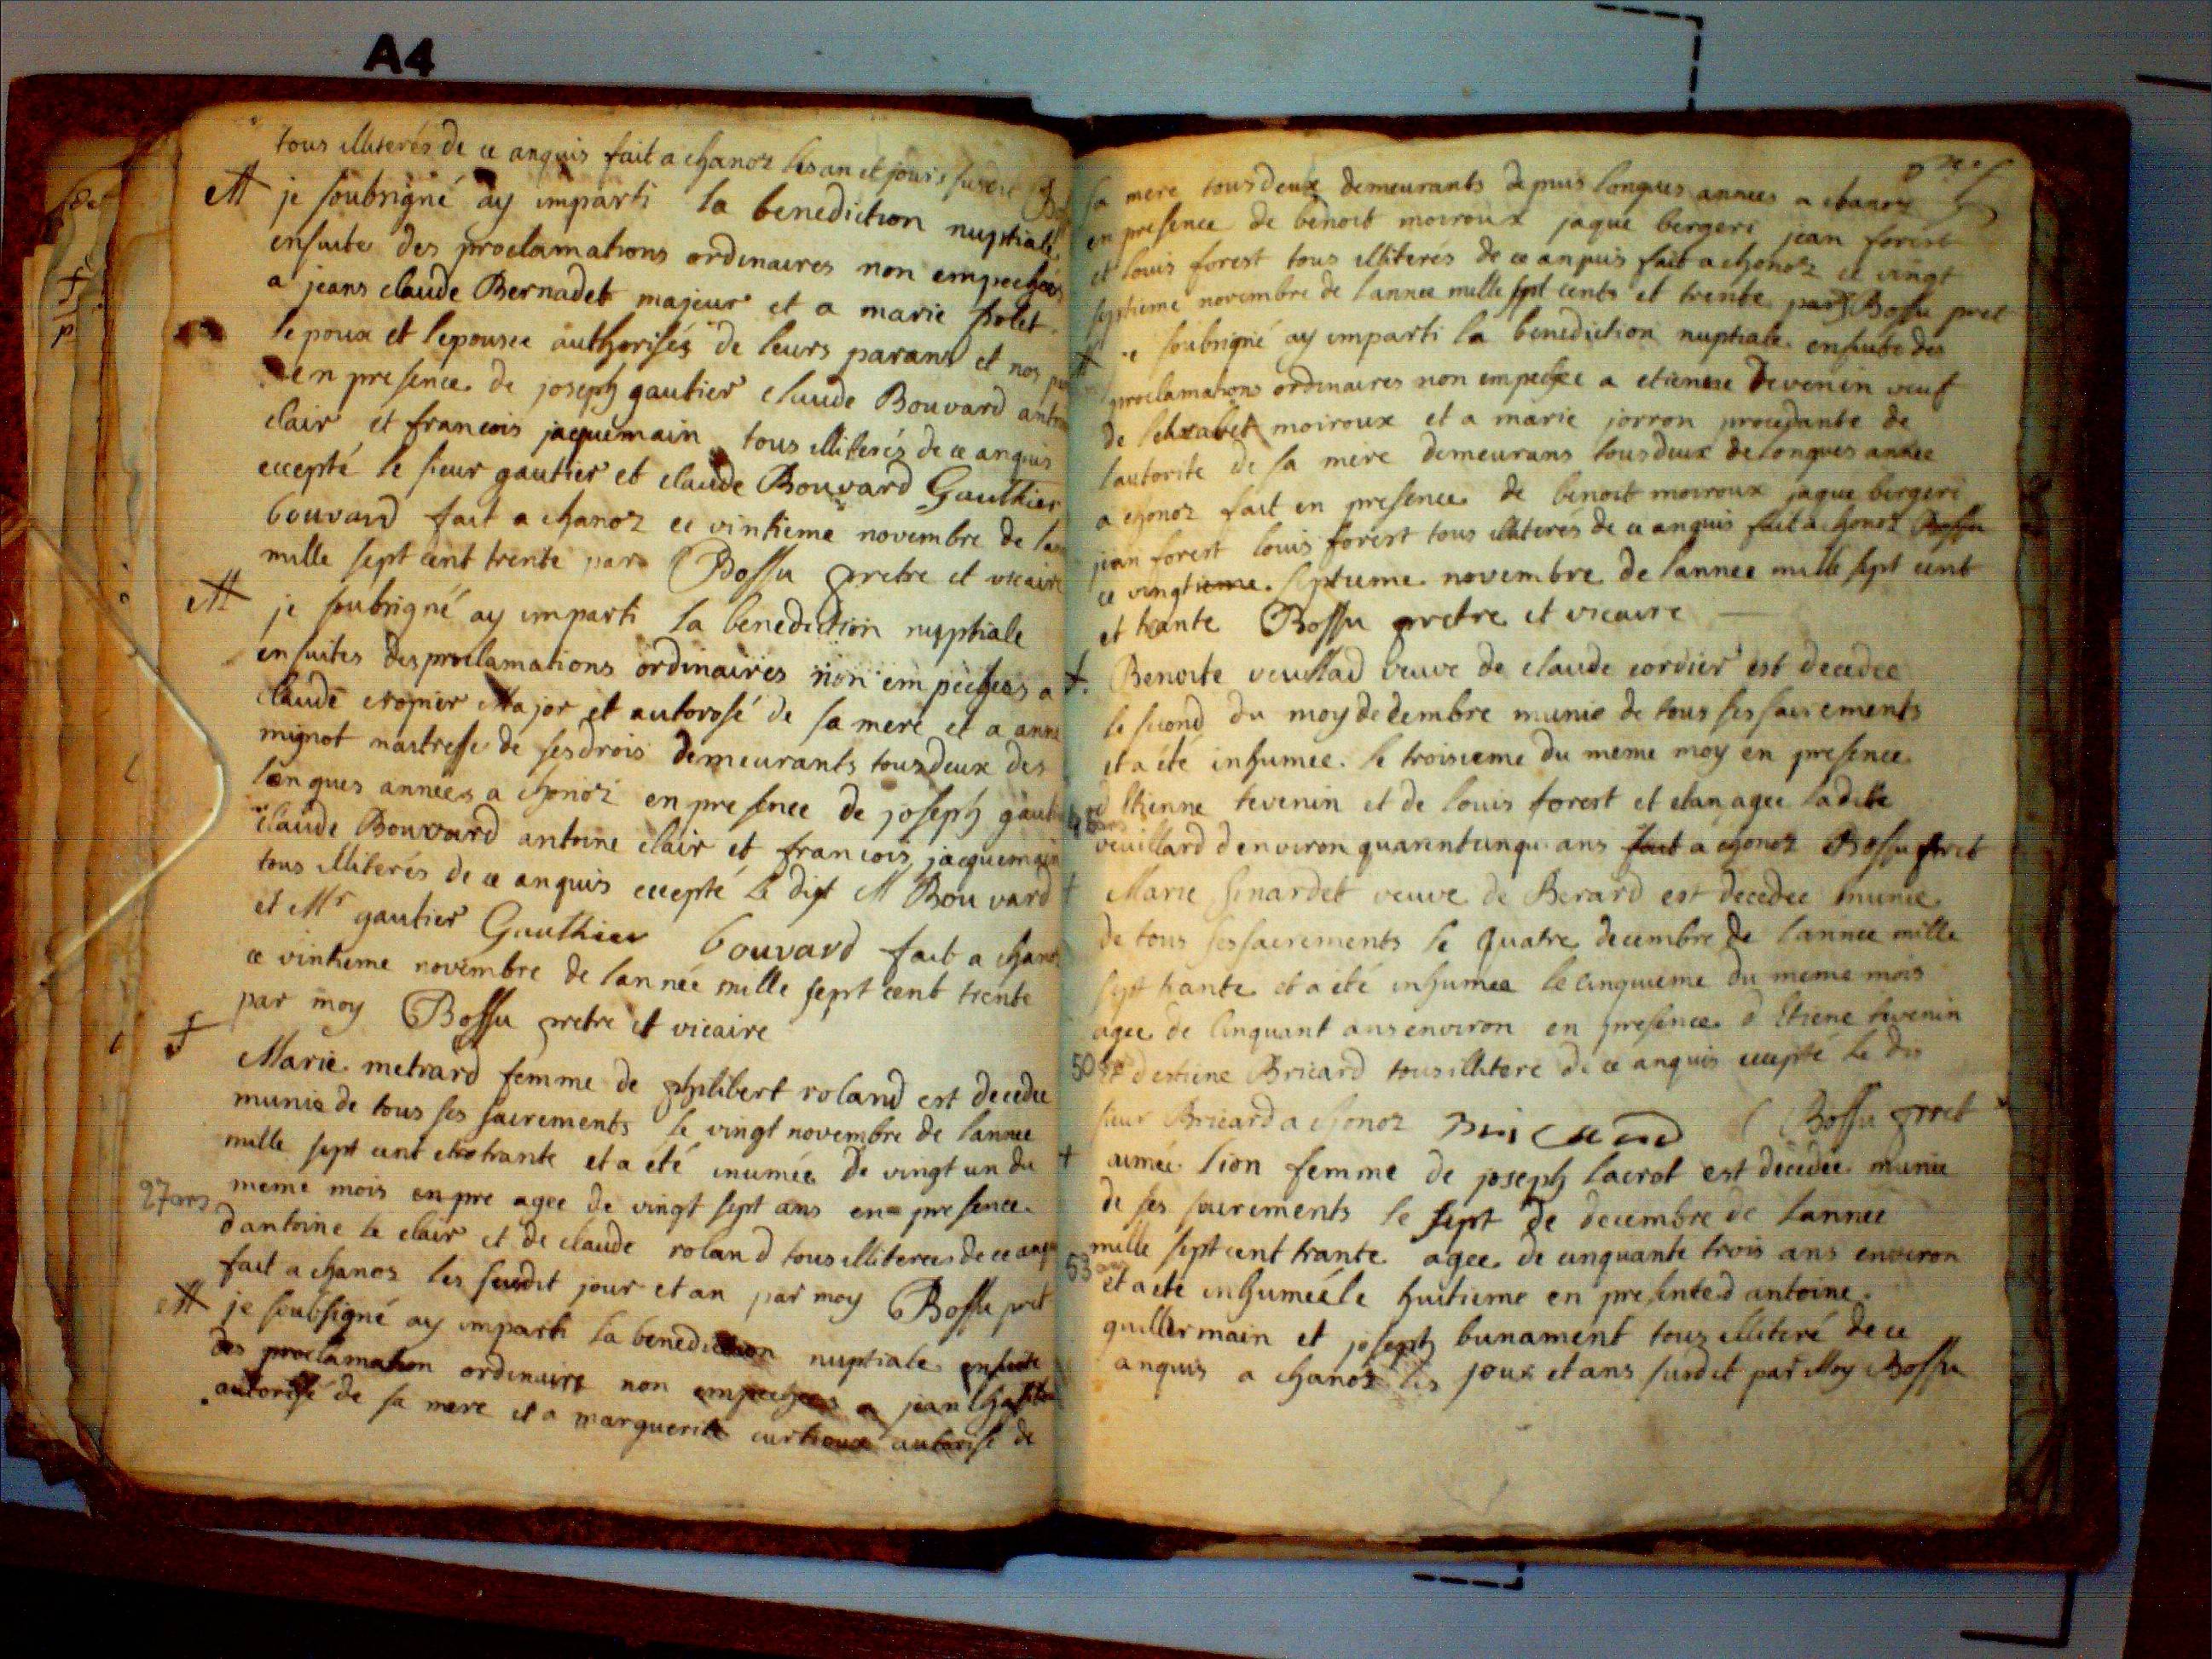 A4
tous illiterés de ce anquis fait a chanoz les an et jours susdit
M je soubsigné ay imparti la benediction nuptiale
ensuite des proclamations ordinaires non empechées
a jeans claude Bernadet majeur et a marie polet
lepoux et lepousee authorisés de leurs parans et nos
en presence de joseph gautier claude Bouvard
clair et francois jaquemain tous illiterés de ce anquis
eccepté le sieur gautier et claude Bouvard Gauthier
bouvard fait a chanoz ce vintieme novembre de
mille sept cent trente par Bossu pretre et vicaire
M je soubsigné ay imparti la benediction nuptiale
ensuites des proclamations ordinaires non empechees a
claude Major et autorosé de sa mere et a anne
mignot maitresse de ses drois demeurants tous deux des
longues annees a chonoz en presence de joseph
claude Bouvard antoine clair et francois jacquemain
tous illiterés de ce anquis eccepté le dit M Bouvard
et Mr gautier Gauthier bouvard fait a chanoz
ce vintieme novembre de lannée mille sept cent trente
par moy Bossu pretre et vicaire
Marie metrard femme de philibert roland est decedee
munie de tous ses sacrements le vingt novembre de lannee
mille sept cent trante et a été inumée de vingt un du
27 ans meme mois en pre agee de vingt sept ans en presence
dantoine le clair et de claude roland tous illiterees de ce
fait a chanoz les susdit jour et an par moy Bossu pret
M je soubsigné ay imparti la benediction nuptiale ensuite
des proclamation ordinaire non empechees a jean
autorisé de sa mere et a marguerite curtioux autorisé de
sa mere tous deux demeurants depuis longues annees a chanoz
en presence de benoit moiroux jaque bergere jean forest
et louis forest tous illiterés de ce anquis fait a chonoz ce vingt
septieme novembre de lannee mille sept cents et trente par Bossu pret
soubsigné ay imparti la benediction nuptiale ensuite des
proclamations ordinaires non empechee a etienne Devenin veuf
de moiroux et a marie jorron procedante de
lautorite de sa mere demeurans tous deux de longues annee
a chonoz fait en presence de benoit moiroux jaque bergere
jean forest louis forest tous illiterés de ce anquis fait a chonoz Bossu
ce vingtieme septieme novembre de lannee mille sept cent
et trante Bossu pretre et vicaire
Benoite veuillad veuve de claude cordier est decedee
le second du moy de dembre munie de tous ses sacrements
et a été inhumee le troisieme du meme moy en presence
d Etienne tevenin et de louis forest et etan agee ladite
veuillard denviron quarentcinq ans fait a chonoz Bossu pret
Marie Sinardet veuve de Berard est decedee munie
de tous ses sacrements le quatre decembre de lannee mille
sept trante et a été inhumee le cinquieme du meme mois
agee de cinquant ans environ en presence d Etiene tevenin
50 et destiene Bricard tous illitere de ce anquis eccepté le dis
sieur Bricard a chonoz Bricard Bossu pret
aimée lion femme de joseph lacrot est décédée munie
de ses sacrements le sept de decembre de lannee
mille sept cent trante agee de cinquante trois ans environ
53 ans et a été inhumée le huitieme en presence d antoine
quillermain et joseph bunament tous illiteré de ce
anquis a chanoz les jour et ans susdit par Moy Bossu